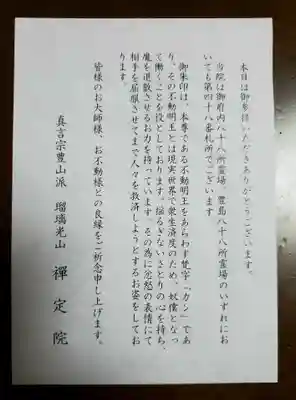 本日は御参拝いただきありがとうございます。
当院は御府内八十八所霊場、豊島八十八所霊場のいずれにお
いても第四十八番札所でございます
御朱印は、本尊である不動明王をあらわす梵字「カン」であ
り、その不動明王とは現実世界で衆生済度のため、奴僕となっ
て働くことを役としております。揺るぎないさとりの心を持ち、
魔を退散させるお力を持っています。その為に忿怒の表情にて
相手を屈服させてまで人々を救済しようとするお姿をしてお
ります。
皆様のお大師様、お不動様との良縁をご祈念申し上げます。
真言宗豊山派 瑠璃光山 禅定院